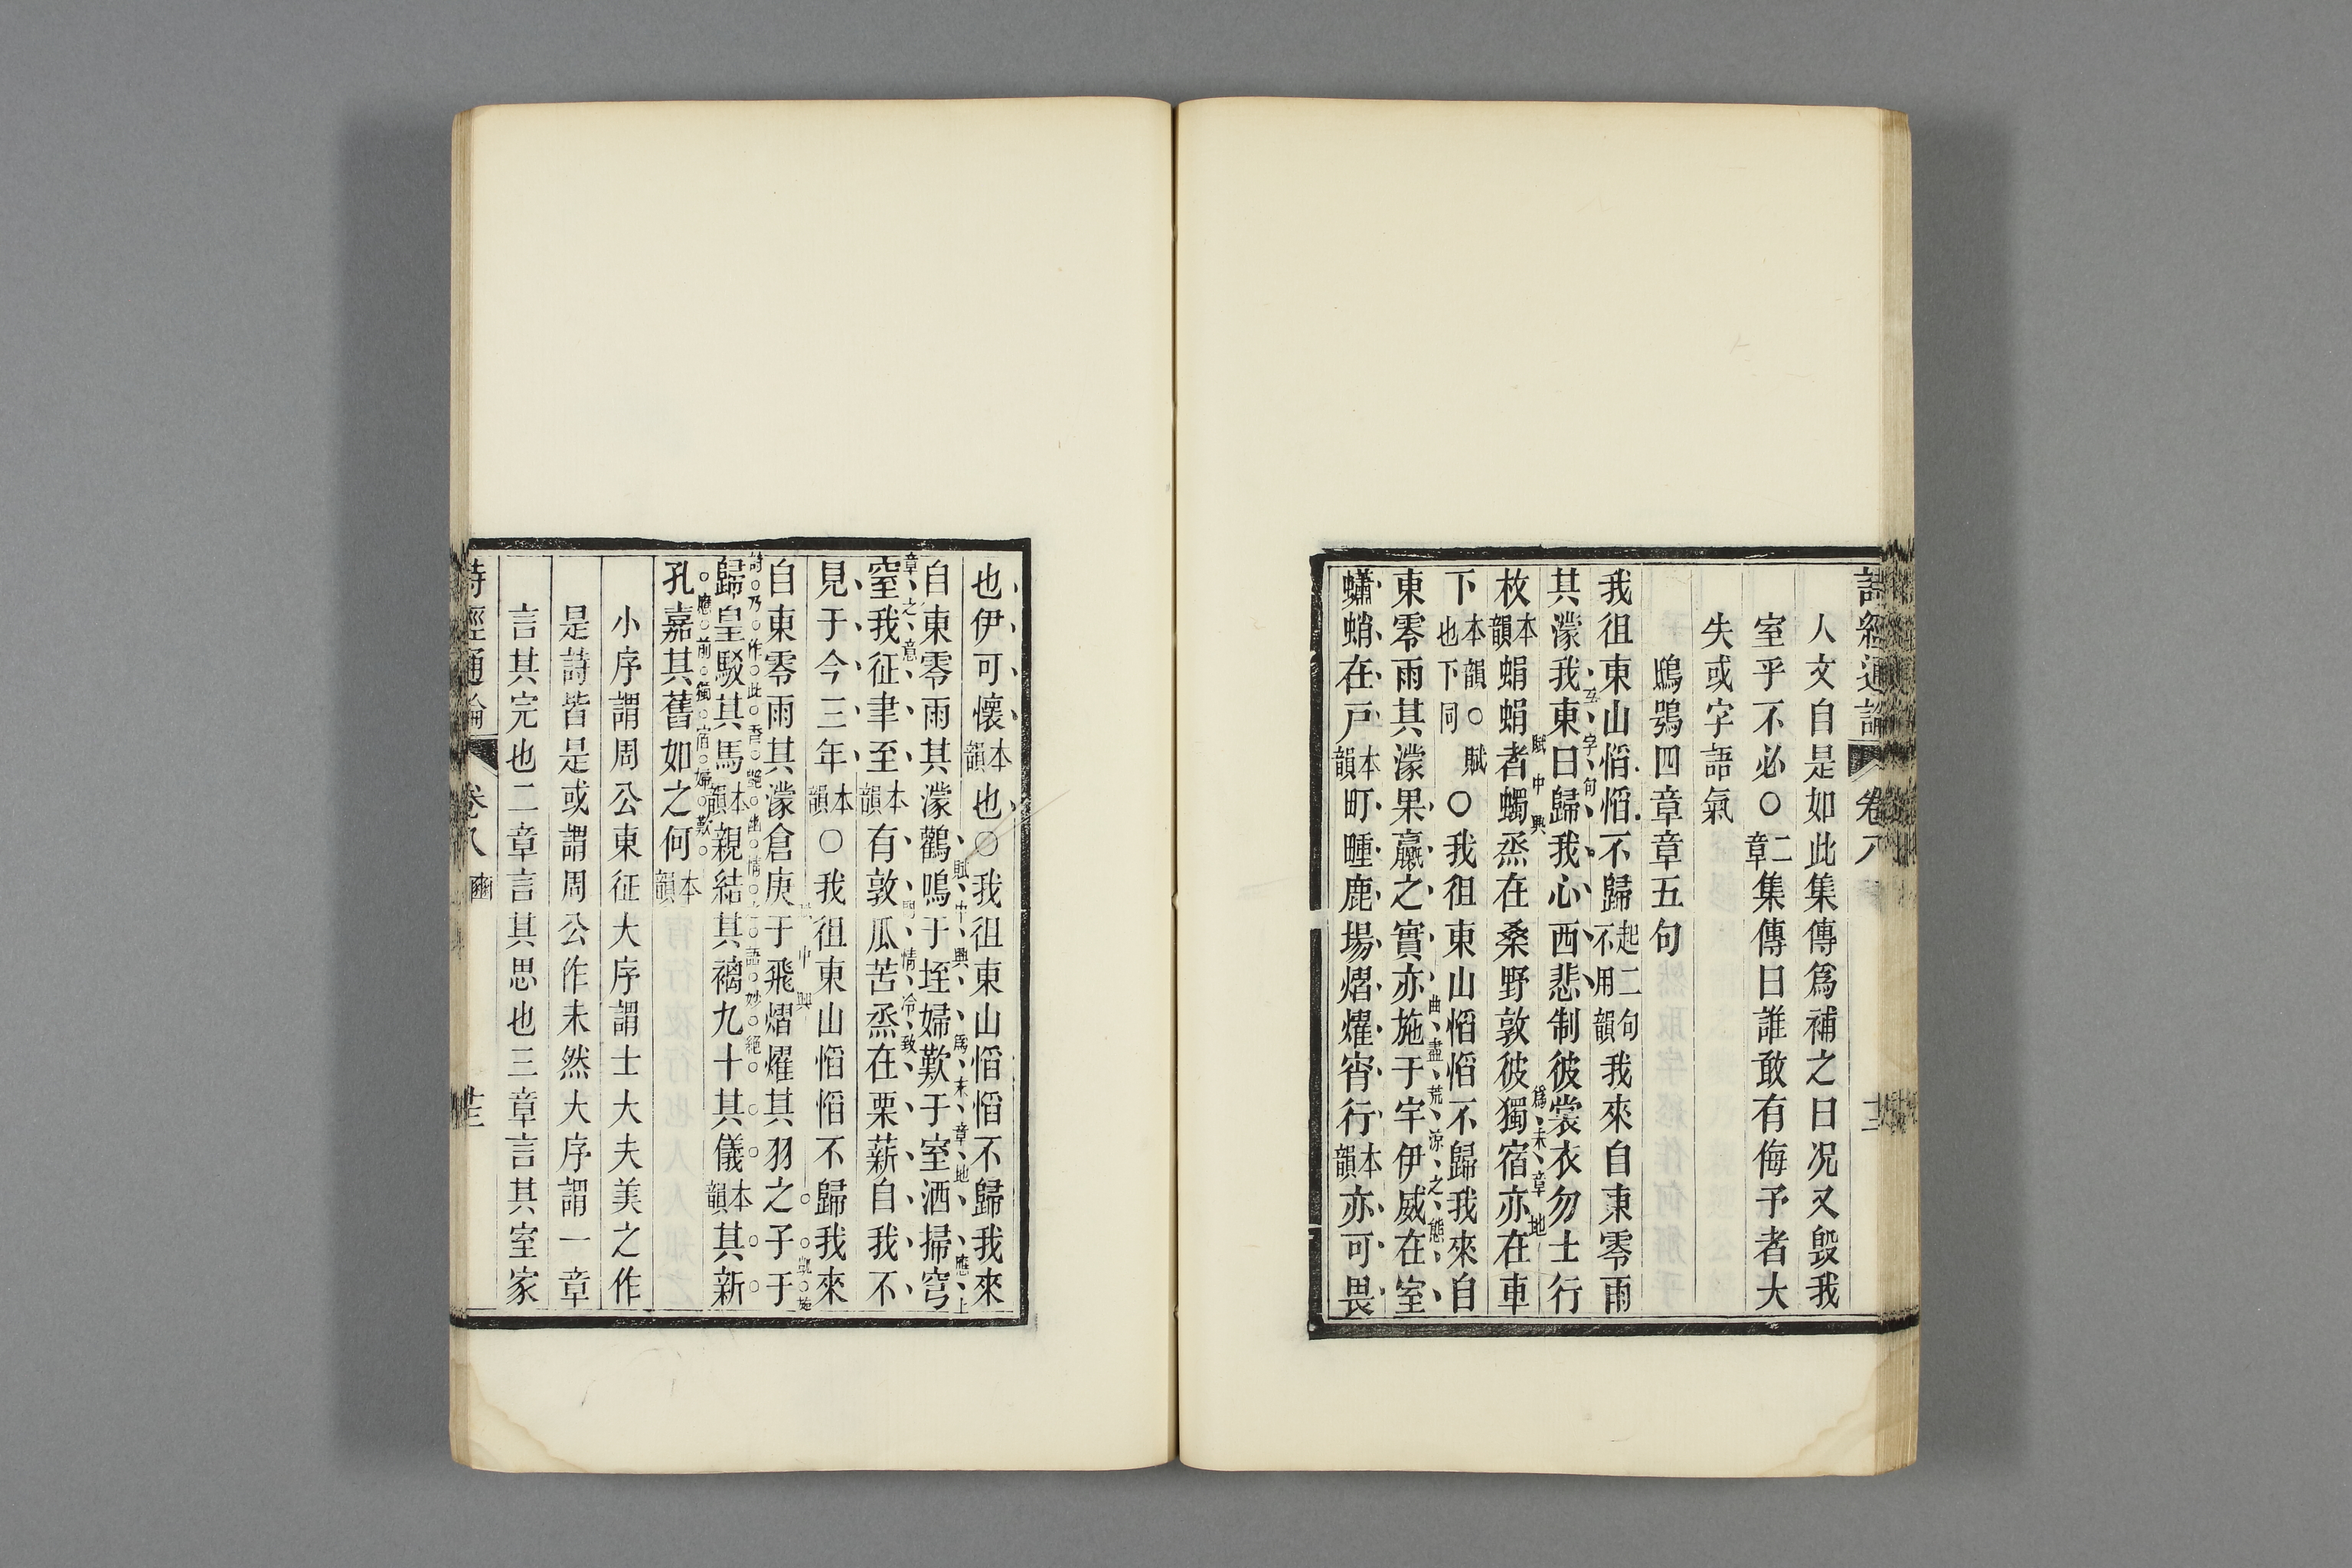 詩經通論 卷八 十二
人文自是如此集傳爲補之曰况又毀我
室乎不必〇二章集傳曰誰敢有侮予者大
失或字語氣
鴟鴞四章章五句
我徂東山慆慆不歸起二句不用韻我來自東零雨
其濛我東曰歸我心西悲制彼裳衣勿士行
互字句
枚本韻蜎蜎者蠋烝在桑野敦彼獨宿亦在車
賦中興 爲末章地
下本韻〇賦也下同〇我徂東山慆慆不歸我來自
東零雨其濛果臝之實亦施于宇伊威在室
曲盡荒涼之態
蠨蛸在戸本韻町畽鹿場熠燿宵行本韻亦可畏
也伊可懷本韻也〇我徂東山慆慆不歸我來
自東零雨其濛鸛鳴于垤婦歎于室洒掃穹
賦中興 爲末章地 應上
窒我征聿至本韻有敦瓜苦烝在栗薪自我不
章之意 情冷致
見于今三年本韻〇我徂東山慆慆不歸我來
自東零雨其濛倉庚于飛熠燿其羽之子于
中興 凱旋
歸皇駁其馬本韻親結其褵九十其儀本韻其新
詩乃作此香艷幽情之語妙絕
孔嘉其舊如之何本韻
應前獨宿婦歎
小序謂周公東征大序謂士大夫美之作
是詩皆是或謂周公作未然大序謂一章
言其完也二章言其思也三章言其室家
詩經通論 卷八 豳 十三